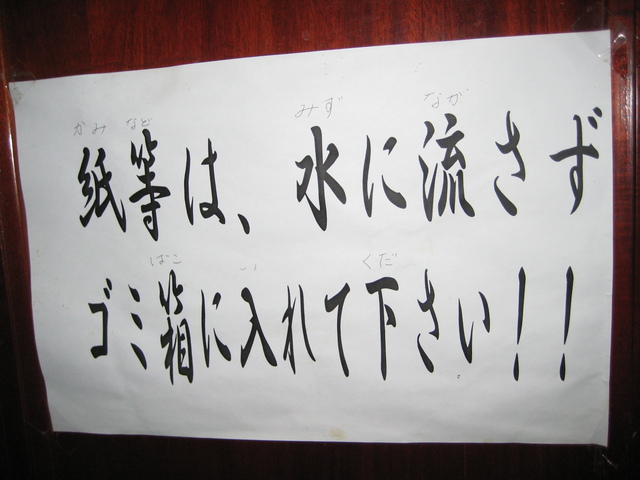 かみ など みず なが
紙等は、水に流さず
ばこ い くだ
ゴミ箱に入れて下さい!!